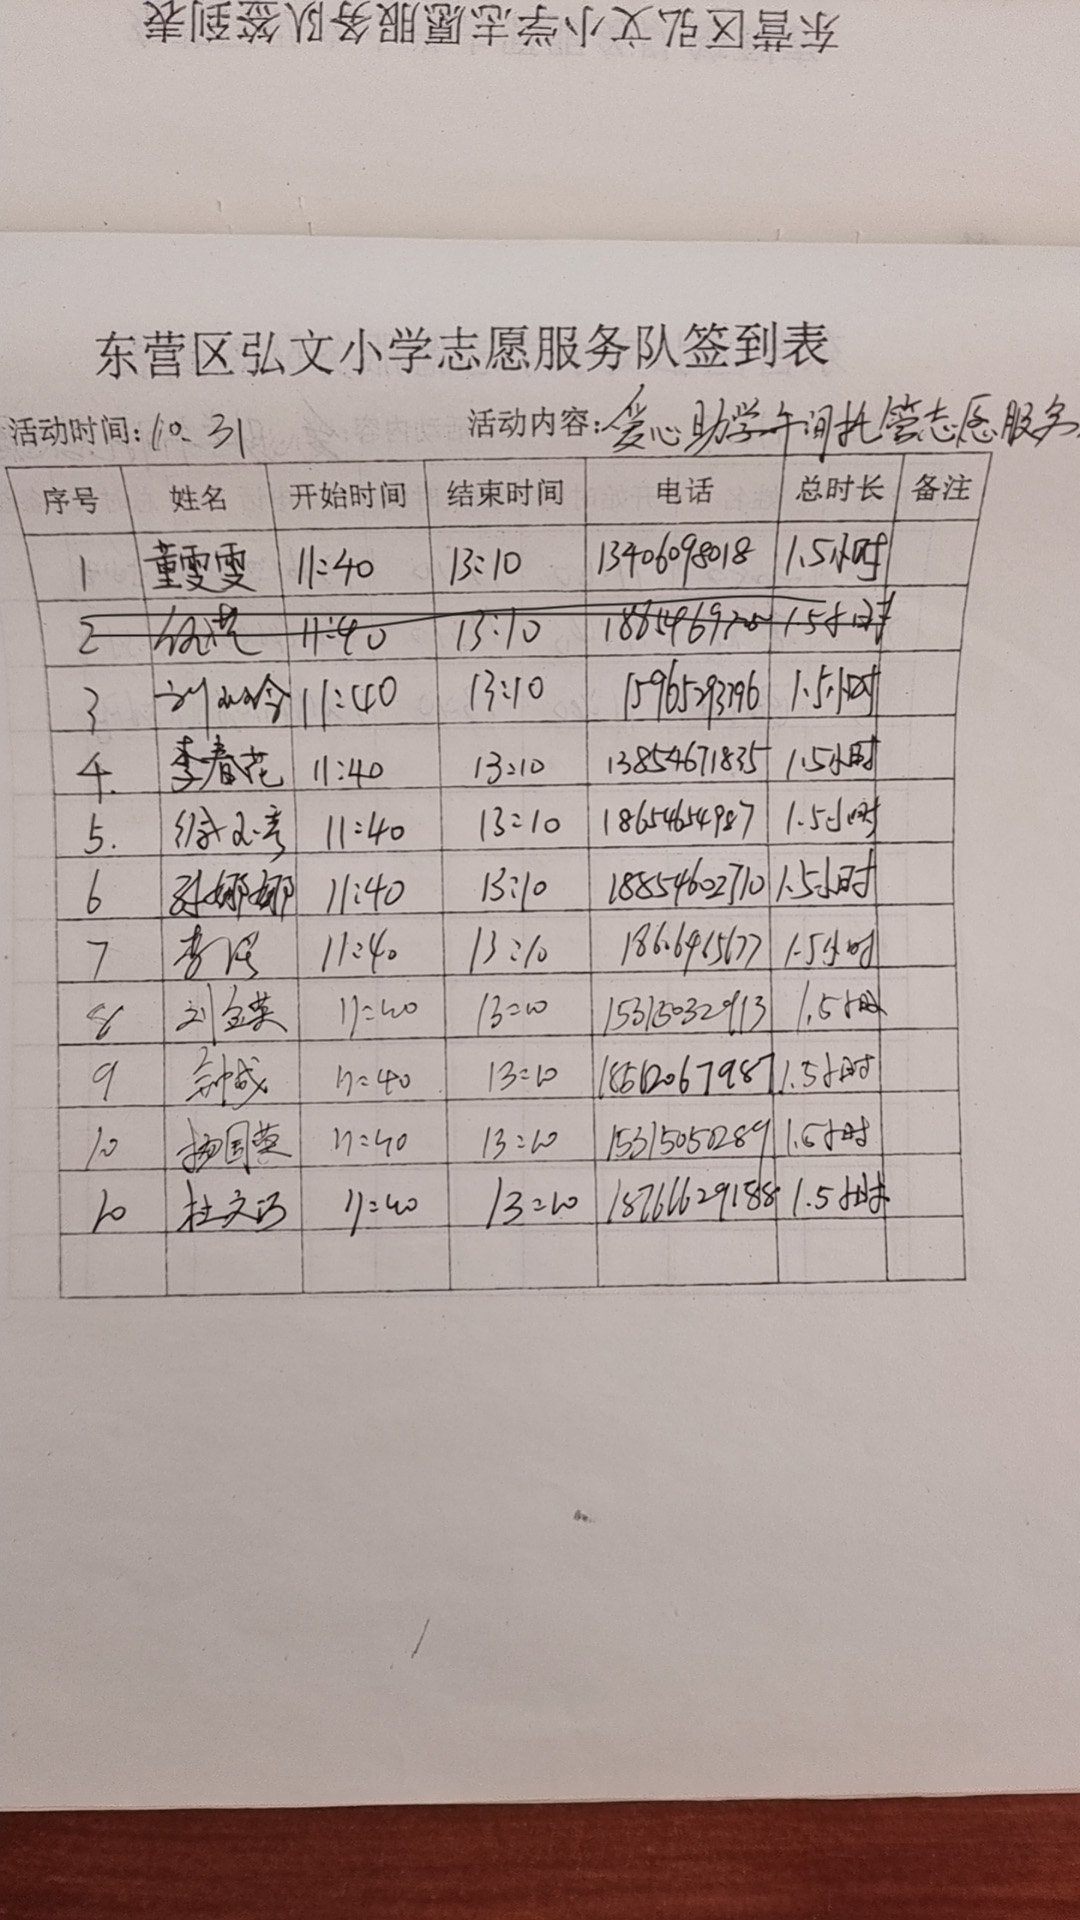 东营区弘文小学志愿服务队签到表
东营区弘文小学志愿服务队签到表
活动时间:10.31 活动内容:爱心助学午间托管志愿服务
序号 姓名 开始时间 结束时间 电话 总时长 备注
1 董雯雯 11:40 13:10 13406098018 1.5小时
2 11:40 13:10 1.5小时
3 11:40 13:10 15965293796 1.5小时
4. 李春花 11:40 13:10 13854671835 1.5小时
5. 11:40 13:10 18654654987 1.5小时
6 孙娜娜 11:40 13:10 18854602710 1.5小时
7 11:40 13:10 1.5小时
8 刘金英 11:40 13:10 15315032913 1.5小时
9 11:40 13:10 1.5小时
10 杨国英 11:40 13:10 15315050289 1.5小时
10 杜文巧 11:40 13:10 18766629188 1.5小时